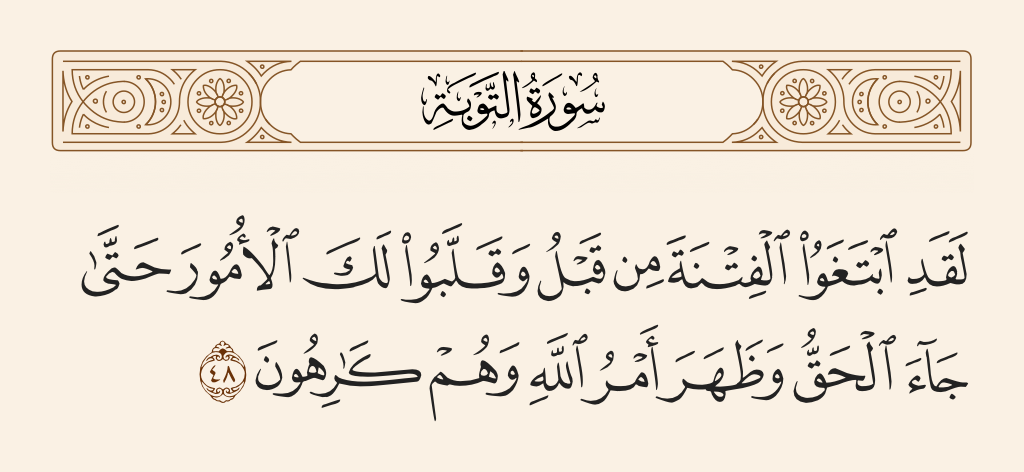 سُورَةُ التَّوۡبَةِ
لَقَدِ ٱبۡتَغَوُاْ ٱلۡفِتۡنَةَ مِن قَبۡلُ وَقَلَّبُواْ لَكَ ٱلۡأُمُورَ حَتَّىٰ
جَآءَ ٱلۡحَقُّ وَظَهَرَ أَمۡرُ ٱللَّهِ وَهُمۡ كَٰرِهُونَ ٤٨